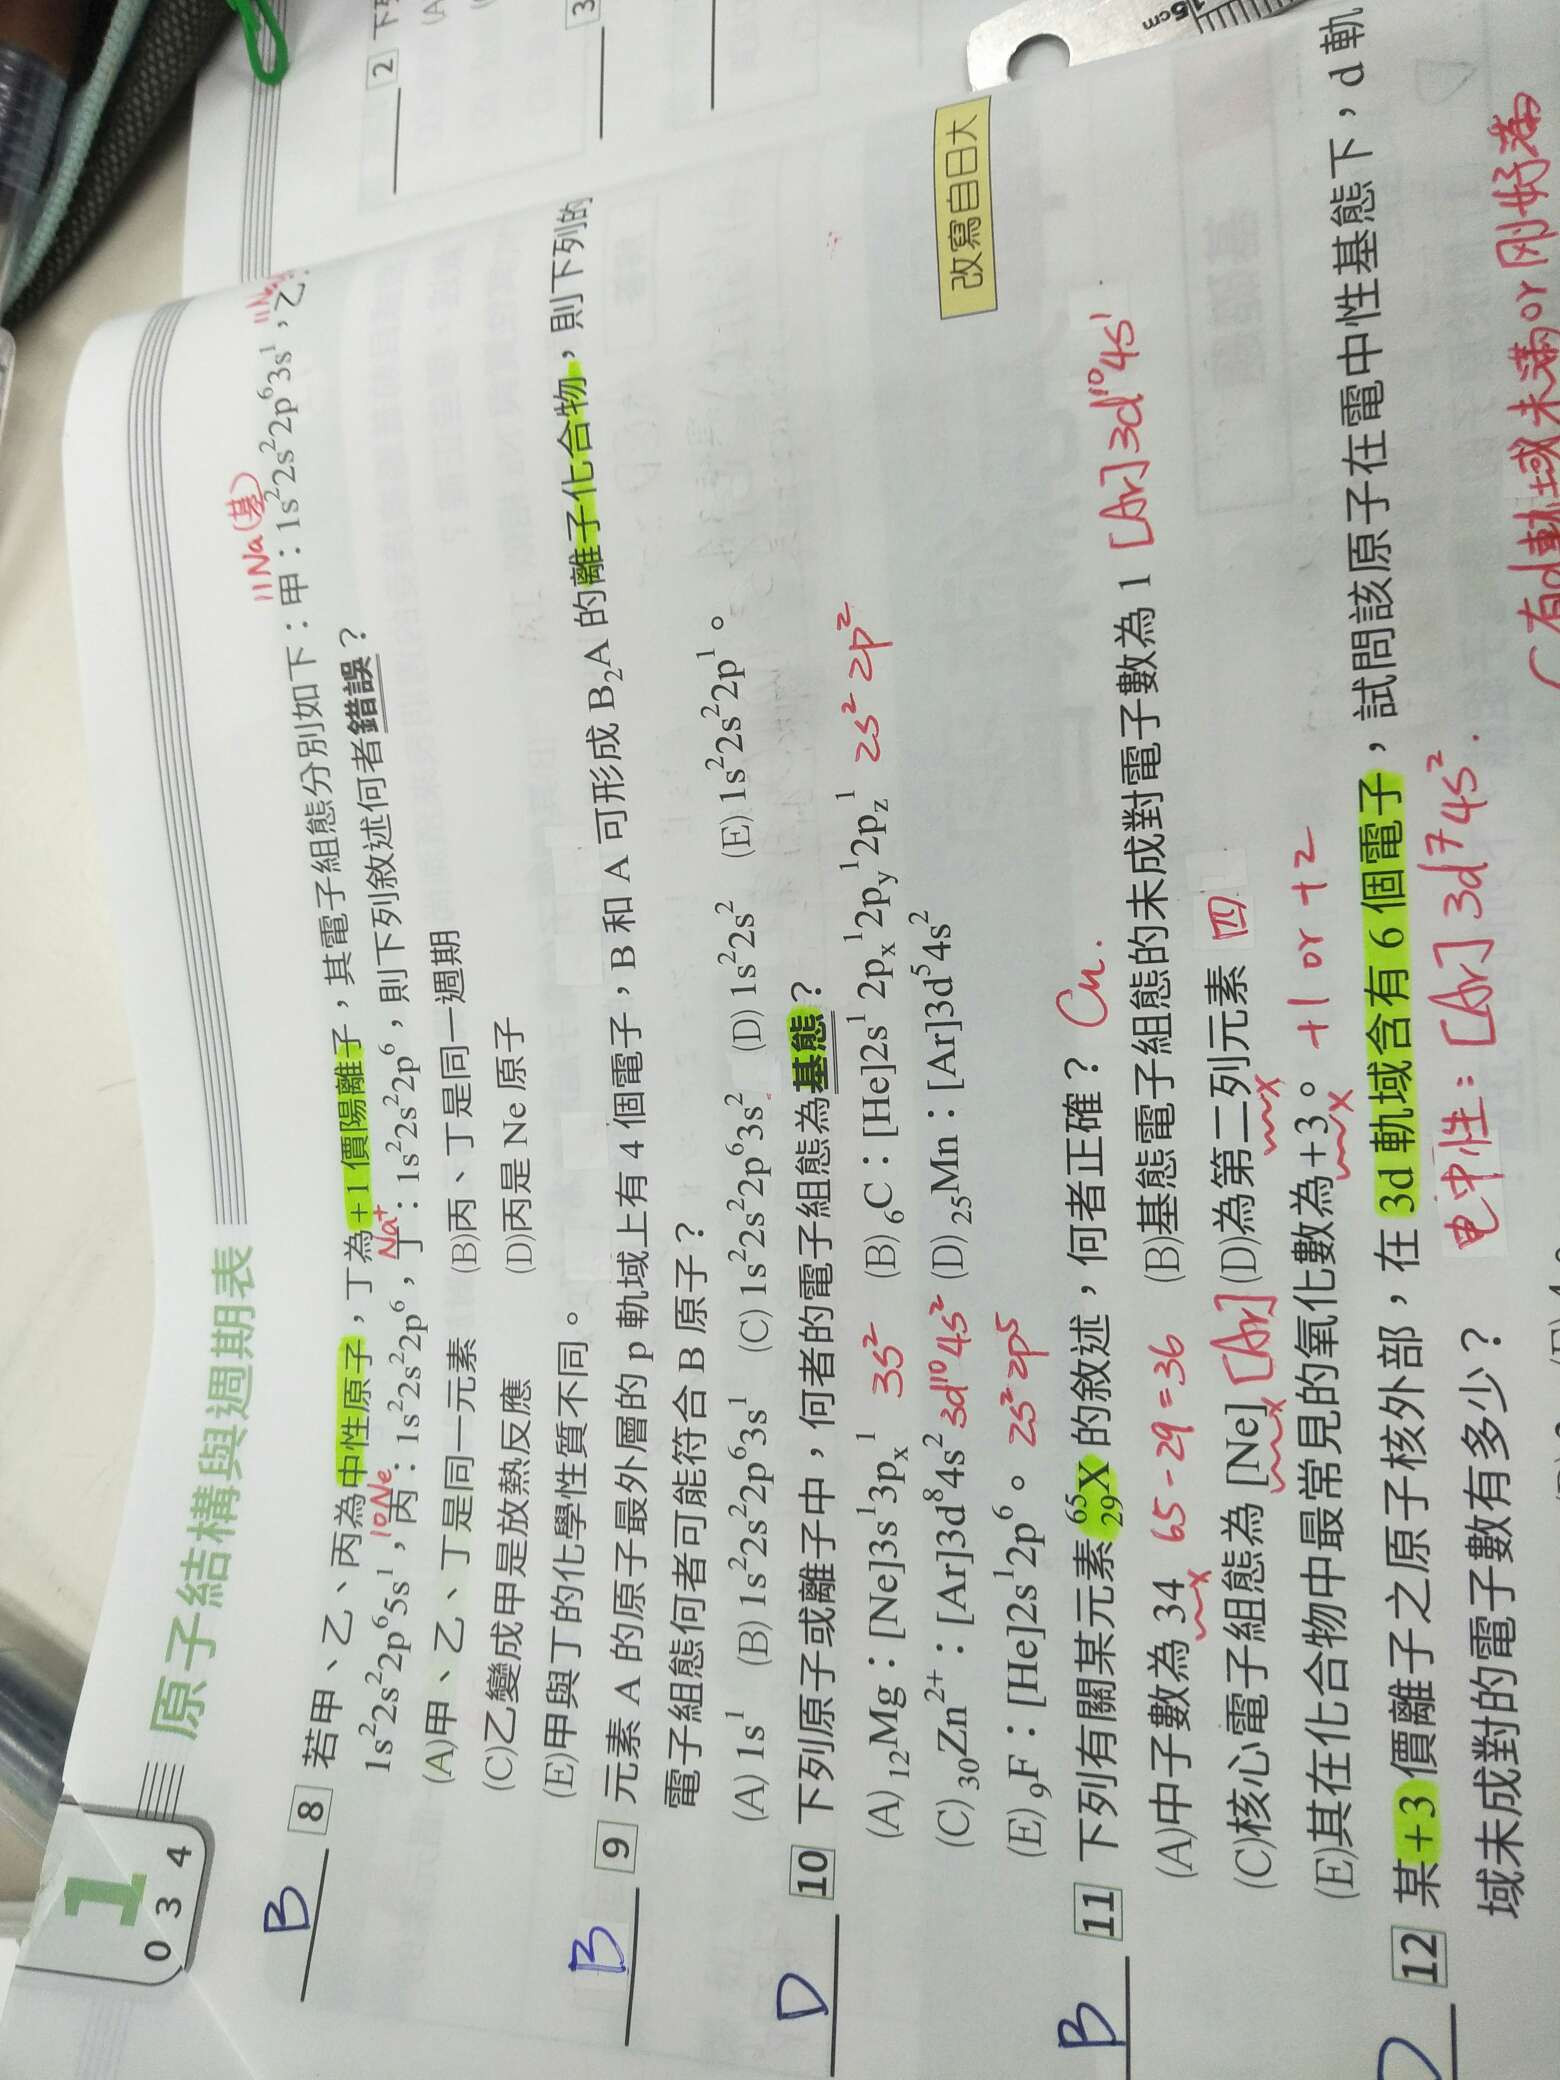 1
034
原子結構與週期表
11Na(基)
B 8 若甲、乙、丙為中性原子，丁為+1價陽離子，其電子組態分別如下：甲：1s²2s²2p⁶3s¹，乙：
10Ne Na⁺
1s²2s²2p⁶5s¹，丙：1s²2s²2p⁶，丁：1s²2s²2p⁶，則下列敘述何者錯誤？
(A)甲、乙、丁是同一元素 (B)丙、丁是同一週期
(C)乙變成甲是放熱反應 (D)丙是 Ne 原子
(E)甲與丁的化學性質不同。
B 9 元素 A 的原子最外層的 p 軌域上有 4 個電子，B 和 A 可形成 B₂A 的離子化合物，則下列的
電子組態何者可能符合 B 原子？
(A) 1s¹ (B) 1s²2s²2p⁶3s¹ (C) 1s²2s²2p⁶3s² (D) 1s²2s² (E) 1s²2s²2p¹。
D 10 下列原子或離子中，何者的電子組態為基態？
(A) ₁₂Mg：[Ne]3s¹3pₓ¹ 3s² (B) ₆C：[He]2s¹2pₓ¹2p_y¹2p_z¹ 2s²2p²
(C) ₃₀Zn²⁺：[Ar]3d⁸4s² 3d¹⁰4s² (D) ₂₅Mn：[Ar]3d⁵4s²
(E) ₉F：[He]2s¹2p⁶。 2s²2p⁵
改寫自日大
B 11 下列有關某元素 ⁶⁵₂₉X 的敘述，何者正確？ Cu.
(A)中子數為 34 x 65-29=36 (B)基態電子組態的未成對電子數為 1 [Ar]3d¹⁰4s¹
(C)核心電子組態為 [Ne] x [Ar] (D)為第二列元素 x 四
(E)其在化合物中最常見的氧化數為+3。 x +1 or +2
D 12 某+3 價離子之原子核外部，在 3d 軌域含有 6 個電子，試問該原子在電中性基態下，d 軌
电中性：[Ar]3d⁷4s².
域未成對的電子數有多少？
有d軌域未滿or刚好滿
2 下列
(A
3
15cm